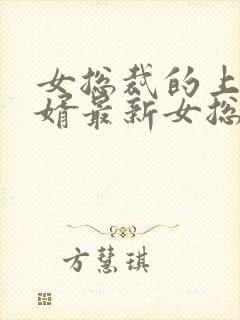 女总裁的上
婿最新女总
方慧琪